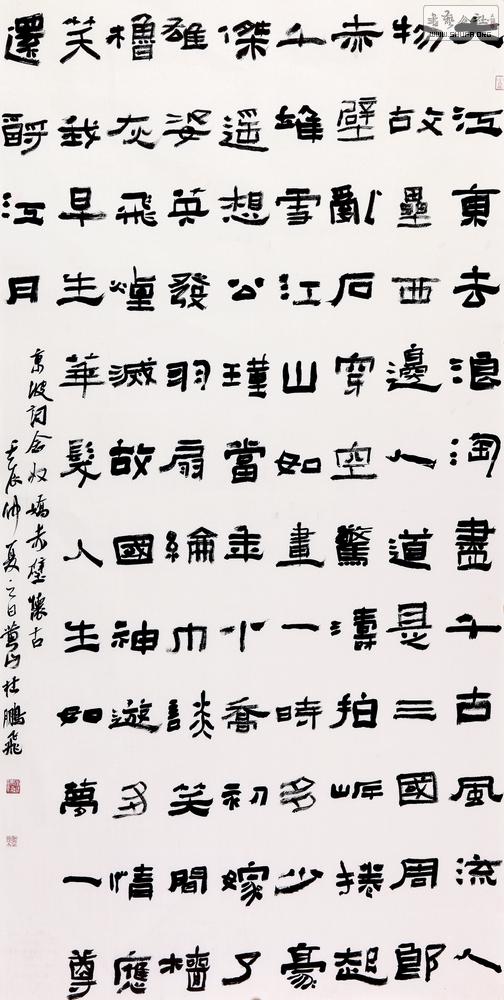 大江東去浪淘盡千古風流人
物故壘西邊人道是三國周郎
赤壁亂石穿空驚濤拍岸捲起
千堆雪江山如畫一時多少豪
傑遙想公瑾當年小喬初嫁了
雄姿英發羽扇綸巾談笑間檣
櫓灰飛煙滅故國神遊多情應
笑我早生華髮人生如夢一尊
還酹江月
東坡詞念奴嬌赤壁懷古
壬辰仲夏之日黃山杜鵬飛
书艺公社
WWW.SHUFA.ORG